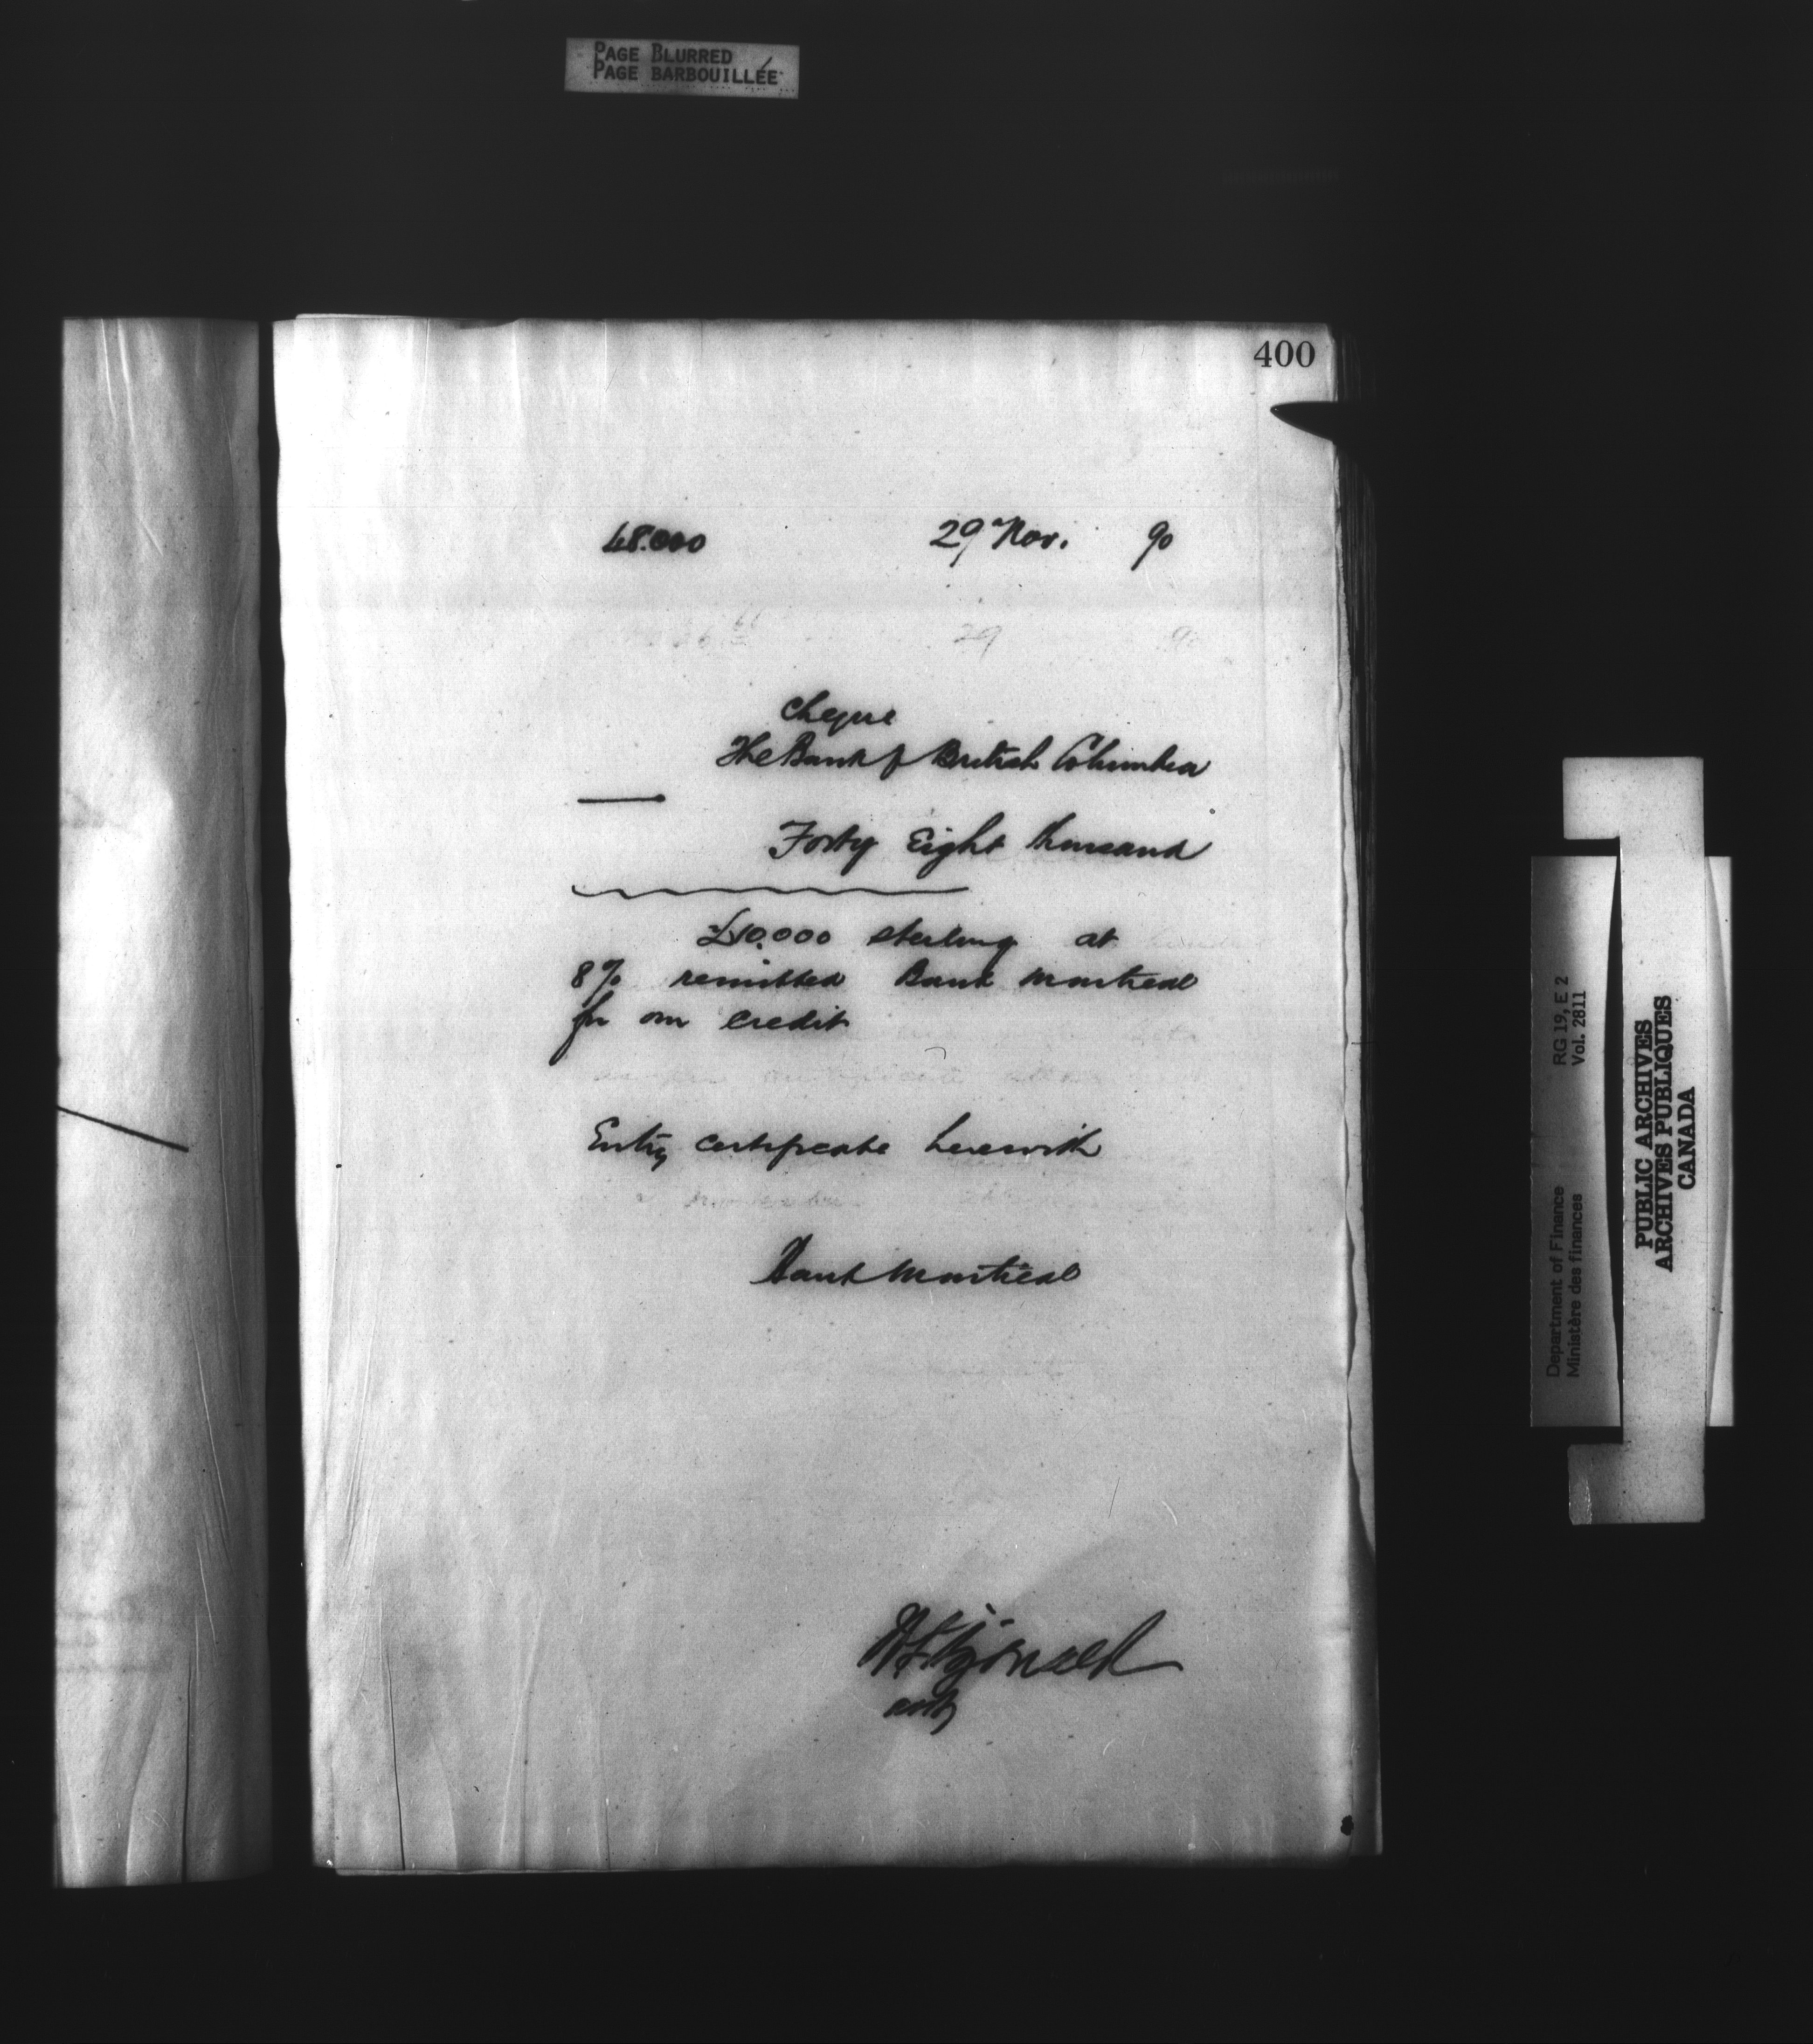 PAGE BLURRED
PAGE BARBOUILLÉE
400
48.000 29 Nov. 90
29 9
Cheque
The Bank of British Columbia
Forty Eight thousand
£10.000 sterling at
8% remitted Bank Montreal
for our credit
Entry certificate herewith
Bank Montreal
RG 19, E 2
Vol. 2811
Department of Finance
Ministère des finances
PUBLIC ARCHIVES
ARCHIVES PUBLIQUES
CANADA